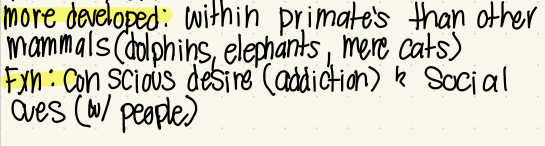 more developed: within primate's than other
mammals (dolphins, elephants, mere cats)
Fxn: Conscious desire (addiction) & Social
cues (w/ people)